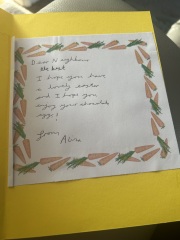 Dear Neighbour
the best
I hope you have
a lovely easter
and I hope you
enjoy your chocolate
eggs!
from